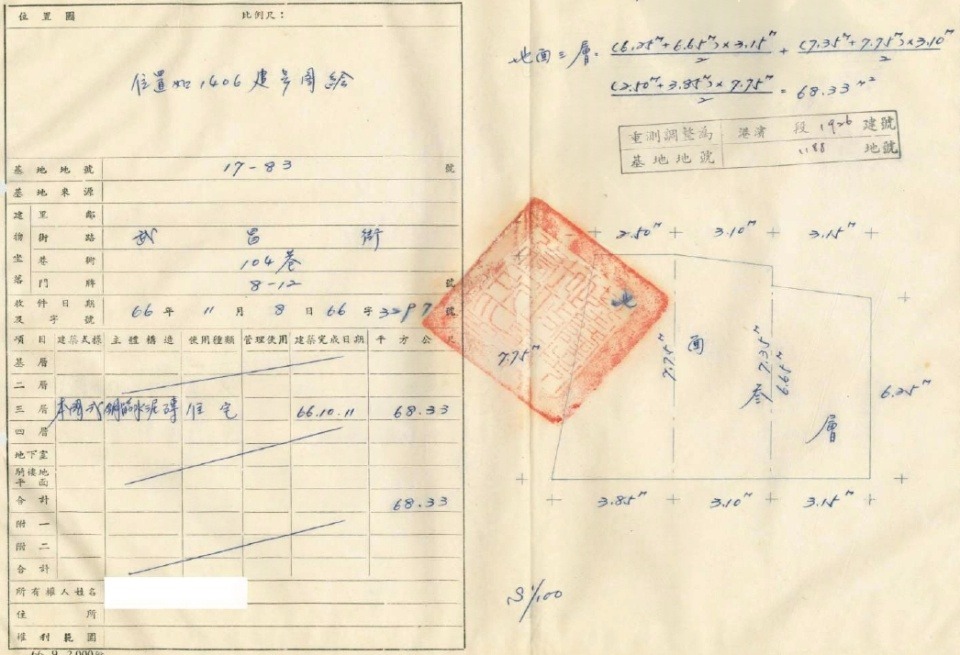 位置圖 比例尺：
位置如1406建号圖繪
基地地號 17-83 號
基地來源
建 里鄰
物 街路 武昌街
坐 巷衖 104巷
落 門牌 8-12 號
收件日期及字號 66年11月8日66字3297號
項目 建築式樣 主體構造 使用種類 管理使用 建築完成日期 平方公尺
基層
二層
三層 本國式 鋼筋水泥磚 住宅 66.10.11 68.33
四層
地下室
騎樓地平面
合計 68.33
附一
附二
合計
所有權人姓名
住所
權利範圍
地面三層= (6.25ᵐ+6.65ᵐ)×3.15ᵐ/2 + (7.35ᵐ+7.75ᵐ)×3.10ᵐ/2
(2.50ᵐ+3.85ᵐ)×7.75ᵐ/2 = 68.33ᵐ²
重測調整為 港濱段 1926 建號
基地地號 地號
2.50ᵐ 3.10ᵐ 3.15ᵐ
地
面
叁
層
7.75ᵐ 7.75ᵐ 7.35ᵐ 6.65ᵐ 6.25ᵐ
3.85ᵐ 3.10ᵐ 3.15ᵐ
S1/100